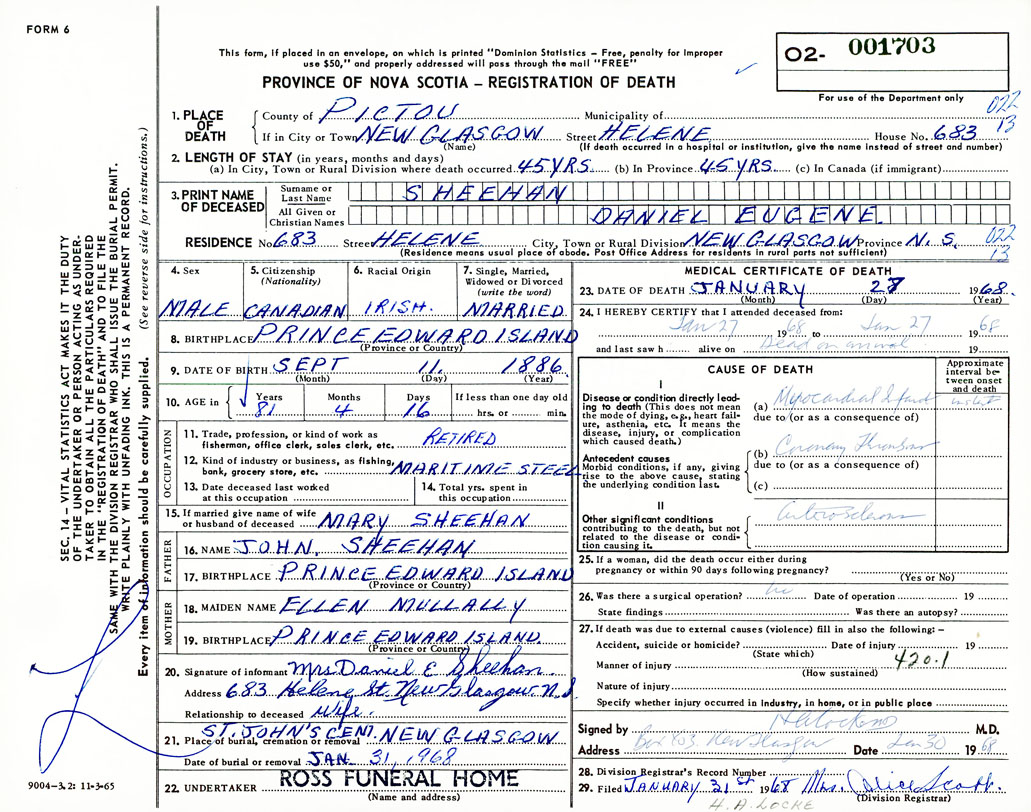 FORM 6
This form, if placed in an envelope, on which is printed "Dominion Statistics – Free, penalty for improper
use $50," and properly addressed will pass through the mail "FREE"
PROVINCE OF NOVA SCOTIA – REGISTRATION OF DEATH
O2- 001703
For use of the Department only
022
13
1. PLACE OF DEATH
County of PICTOU Municipality of
If in City or Town NEW GLASGOW Street HELENE House No. 683
(Name) (If death occurred in a hospital or institution, give the name instead of street and number)
2. LENGTH OF STAY (in years, months and days)
(a) In City, Town or Rural Division where death occurred 45 YRS. (b) In Province 45 YRS. (c) In Canada (if immigrant)
3. PRINT NAME OF DECEASED
Surname or Last Name SHEEHAN
All Given or Christian Names DANIEL EUGENE
RESIDENCE No. 683 Street HELENE City, Town or Rural Division NEW GLASGOW Province N. S. 022
(Residence means usual place of abode. Post Office Address for residents in rural parts not sufficient) 13
4. Sex MALE
5. Citizenship (Nationality) CANADIAN
6. Racial Origin IRISH.
7. Single, Married, Widowed or Divorced (write the word) MARRIED
8. BIRTHPLACE PRINCE EDWARD ISLAND
(Province or Country)
9. DATE OF BIRTH SEPT 11, 1886.
(Month) (Day) (Year)
10. AGE in Years 81 Months 4 Days 16 If less than one day old hrs. or min.
OCCUPATION
11. Trade, profession, or kind of work as fisherman, office clerk, sales clerk, etc. RETIRED
12. Kind of industry or business, as fishing, bank, grocery store, etc. MARITIME STEEL
13. Date deceased last worked at this occupation
14. Total yrs. spent in this occupation
15. If married give name of wife or husband of deceased MARY SHEEHAN
FATHER
16. NAME JOHN. SHEEHAN
17. BIRTHPLACE PRINCE EDWARD ISLAND
(Province or Country)
MOTHER
18. MAIDEN NAME ELLEN MULLALLY
19. BIRTHPLACE PRINCE EDWARD ISLAND.
(Province or Country)
20. Signature of informant Mrs. Daniel E Sheehan.
Address 683 Helene St. New Glasgow. N.S.
Relationship to deceased wife.
21. Place of burial, cremation or removal ST. JOHN'S CEM. NEW GLASGOW
Date of burial or removal JAN. 31, 1968
22. UNDERTAKER ROSS FUNERAL HOME
(Name and address)
MEDICAL CERTIFICATE OF DEATH
23. DATE OF DEATH JANUARY 27 1968.
(Month) (Day) (Year)
24. I HEREBY CERTIFY that I attended deceased from:
Jan 27 1968 to Jan 27 1968
and last saw h alive on Dead on arrival 19
CAUSE OF DEATH
Approximate interval between onset and death
I
Disease or condition directly leading to death (This does not mean the mode of dying, e.g., heart failure, asthenia, etc. It means the disease, injury, or complication which caused death.)
(a) Myocardial Infarct
due to (or as a consequence of)
Antecedent causes
Morbid conditions, if any, giving rise to the above cause, stating the underlying condition last.
(b) Coronary Thrombosis
due to (or as a consequence of)
(c)
II
Other significant conditions contributing to the death, but not related to the disease or condition causing it.
25. If a woman, did the death occur either during pregnancy or within 90 days following pregnancy?
(Yes or No)
26. Was there a surgical operation? no Date of operation 19
State findings Was there an autopsy?
27. If death was due to external causes (violence) fill in also the following: –
Accident, suicide or homicide? Date of injury 19
(State which)
Manner of injury 420.1
(How sustained)
Nature of injury
Specify whether injury occurred in industry, in home, or in public place
Signed by M.D.
Address Box 403 New Glasgow Date Jan 30 1968
28. Division Registrar's Record Number
29. Filed JANUARY 31st 1968 Mrs. Alice Scott.
(Division Registrar)
H. A. LOCKE
SEC. 14 – VITAL STATISTICS ACT MAKES IT THE DUTY
OF THE UNDERTAKER OR PERSON ACTING AS UNDER-
TAKER TO OBTAIN ALL THE PARTICULARS REQUIRED
IN THE "REGISTRATION OF DEATH" AND TO FILE THE
SAME WITH THE DIVISION REGISTRAR WHO SHALL ISSUE THE BURIAL PERMIT.
WRITE PLAINLY WITH UNFADING INK. THIS IS A PERMANENT RECORD.
Every item of information should be carefully supplied. (See reverse side for instructions.)
9004-3.2: 11-3-65